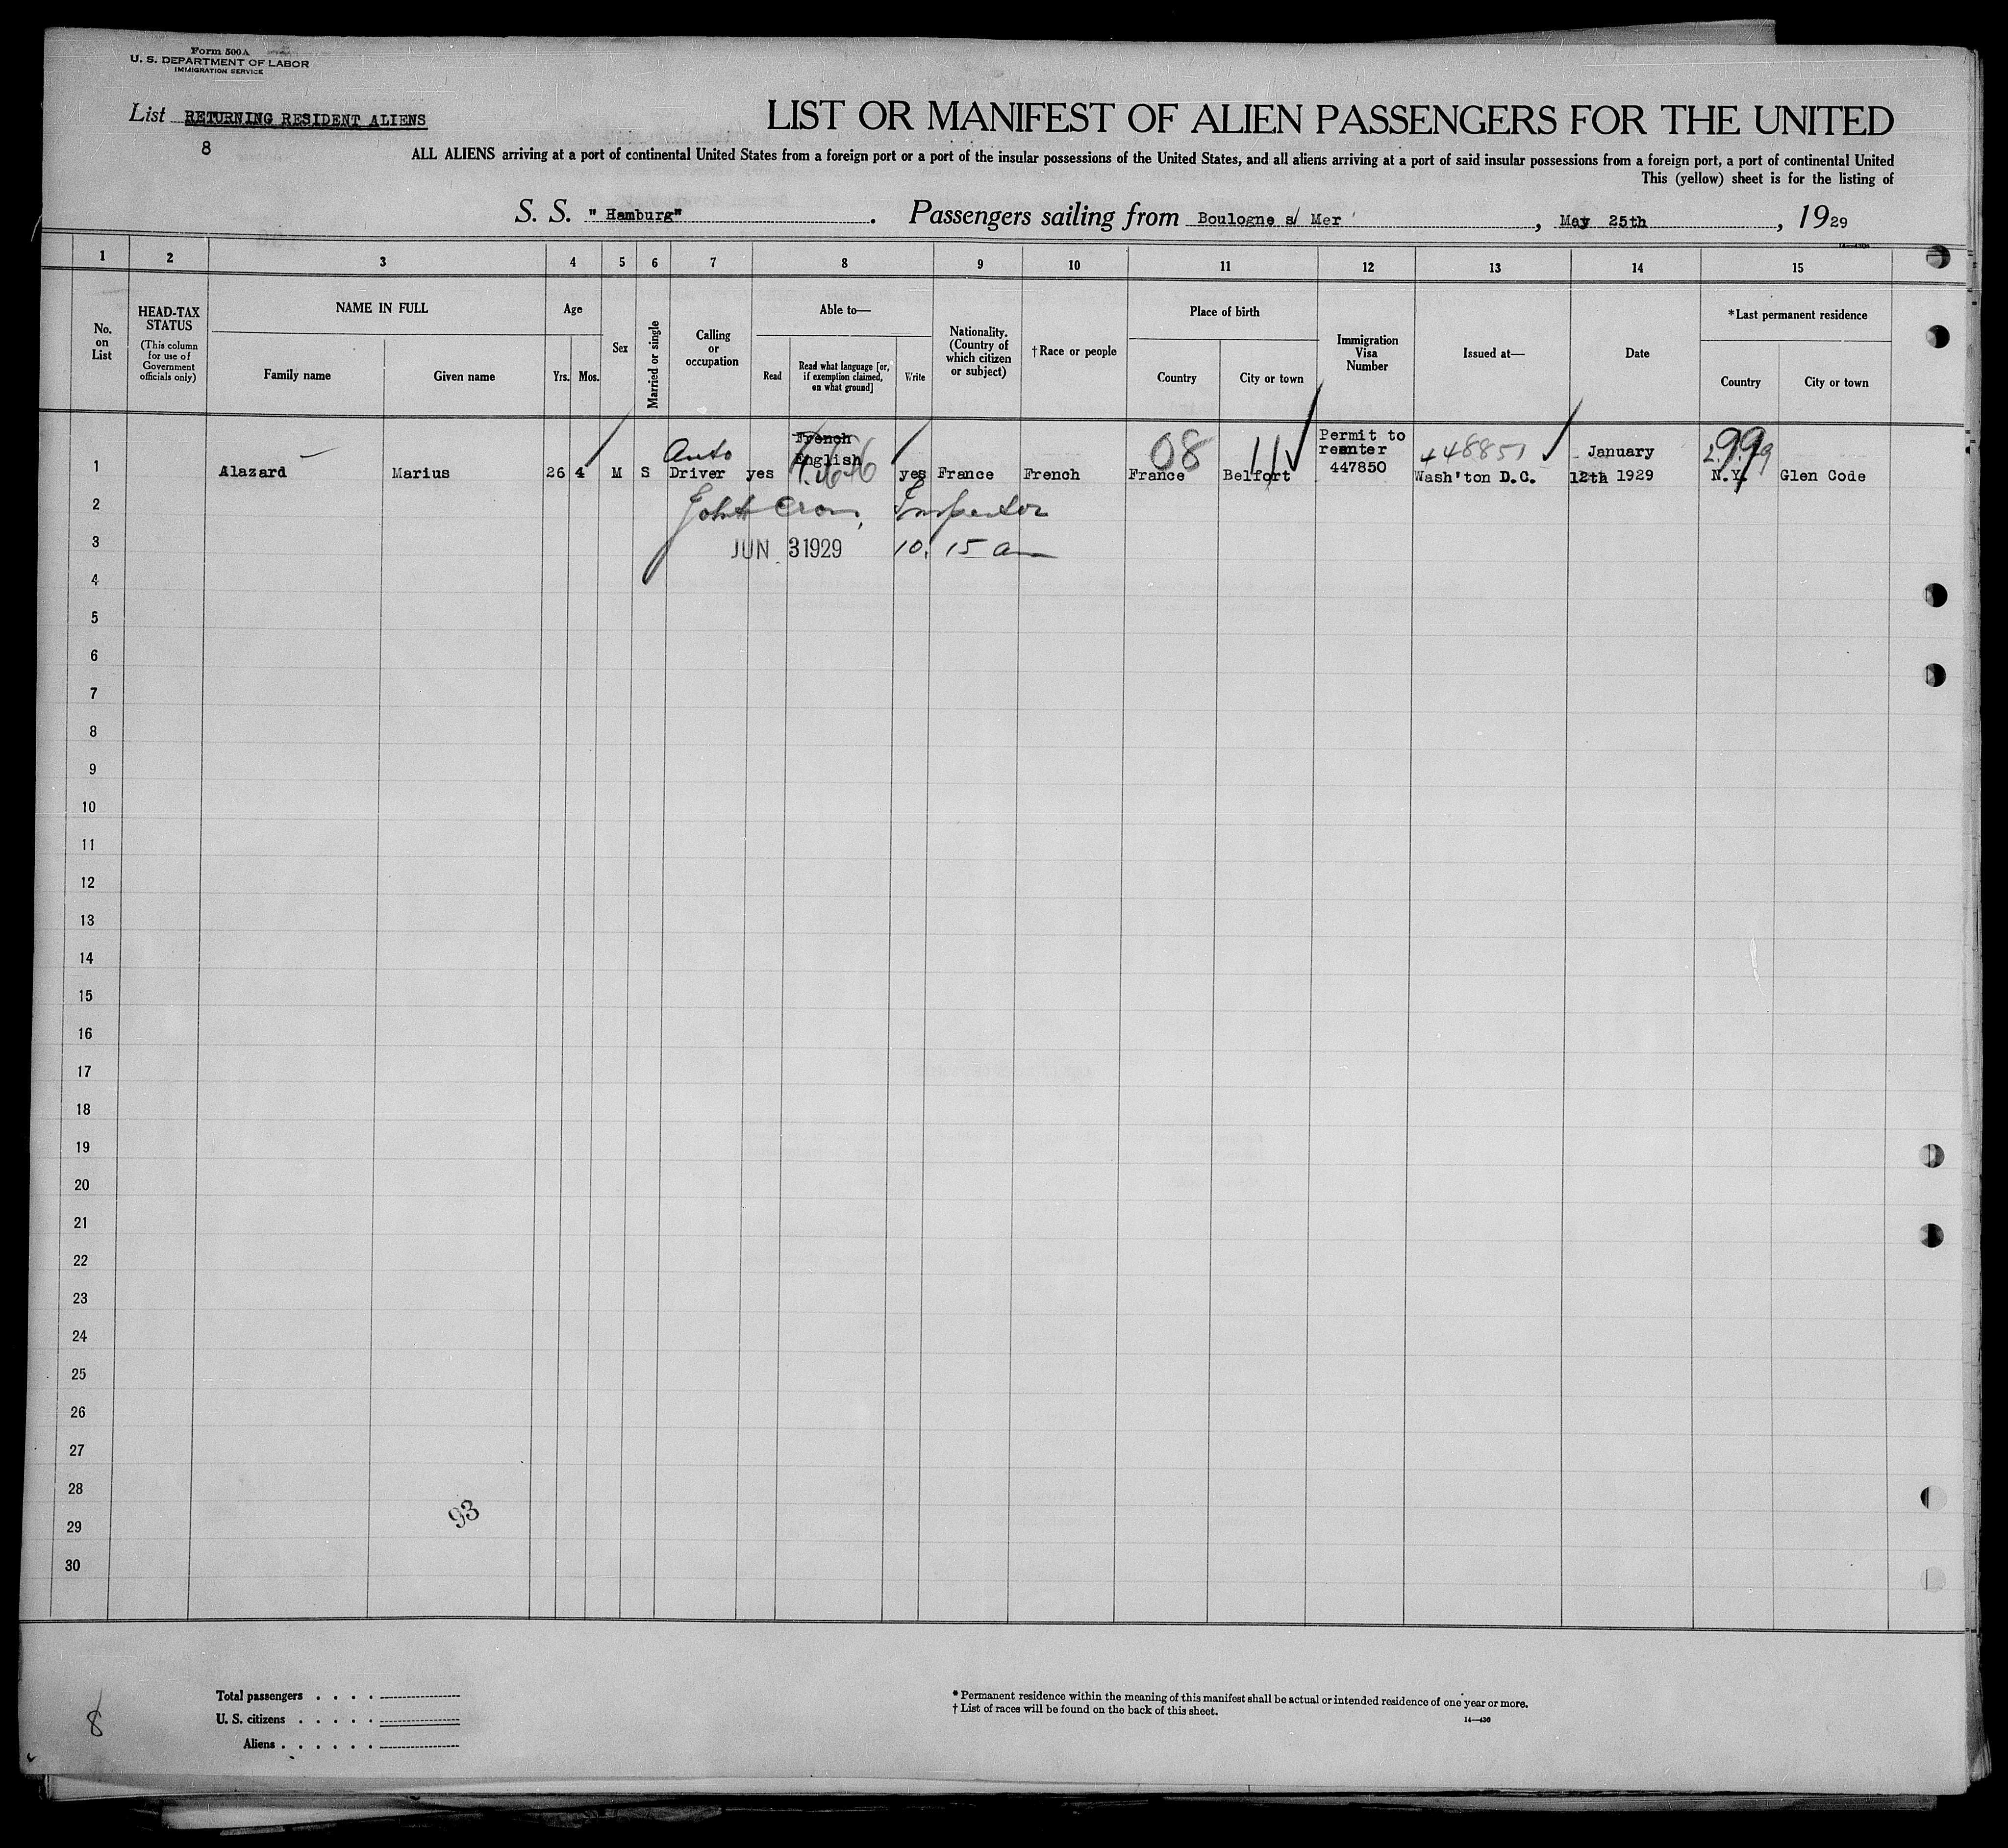 Form 500A
U. S. DEPARTMENT OF LABOR
IMMIGRATION SERVICE
List RETURNING RESIDENT ALIENS
8
LIST OR MANIFEST OF ALIEN PASSENGERS FOR THE UNITED
ALL ALIENS arriving at a port of continental United States from a foreign port or a port of the insular possessions of the United States, and all aliens arriving at a port of said insular possessions from a foreign port, a port of continental United
This (yellow) sheet is for the listing of
S. S. "Hamburg". Passengers sailing from Boulogne s/ Mer, May 25th, 1929
1 2 3 4 5 6 7 8 9 10 11 12 13 14 15
No. on List
HEAD-TAX STATUS
(This column for use of Government officials only)
NAME IN FULL
Family name
Given name
Age
Yrs.
Mos.
Sex
Married or single
Calling or occupation
Able to—
Read
Read what language [or, if exemption claimed, on what ground]
Write
Nationality. (Country of which citizen or subject)
†Race or people
Place of birth
Country
City or town
Immigration Visa Number
Issued at—
Date
*Last permanent residence
Country
City or town
Auto French 08 11 Permit to
English reenter 448851 January 99
1 Alazard Marius 26 4 M S Driver yes yes France French France Belfort 447850 Wash'ton D.C. 12th 1929 N.Y. Glen Code
2 Inspector
3 JUN 3 1929 10.15 am
4
5
6
7
8
9
10
11
12
13
14
15
16
17
18
19
20
21
22
23
24
25
26
27
28
93
29
30
Total passengers . . . .
U. S. citizens . . . . .
Aliens . . . . . .
8
* Permanent residence within the meaning of this manifest shall be actual or intended residence of one year or more.
† List of races will be found on the back of this sheet.
14—436